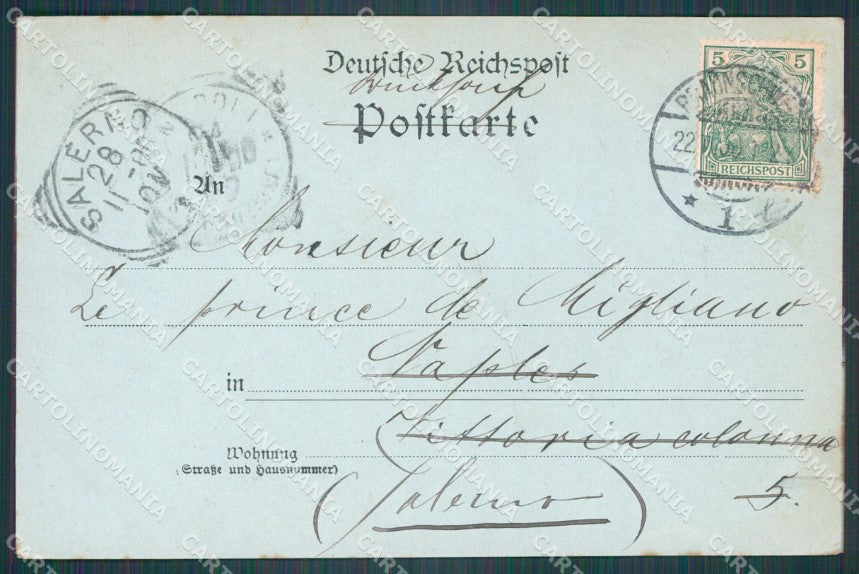 Deutsche Reichspost
Drucksache
Postkarte
5 5
REICHSPOST
22
* 1
SALERNO
28
11
An
Monsieur
Le prince de Migliano
in Naples
Vittoria colonna
Wohnung
(Straße und Hausnummer)
5.
(Salerno)
CARTOLINOMANIA